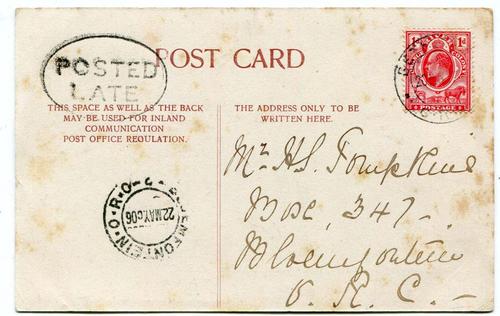 POSTED
LATE
POST CARD
THIS SPACE AS WELL AS THE BACK
MAY BE USED FOR INLAND
COMMUNICATION
POST OFFICE REGULATION.
THE ADDRESS ONLY TO BE
WRITTEN HERE.
1d
POSTAGE
BLOEMFONTEIN · O · R · C
22 MAY 06
Mr. H S. Tompkins
Box, 347.
Bloemfontein
O. R. C. —